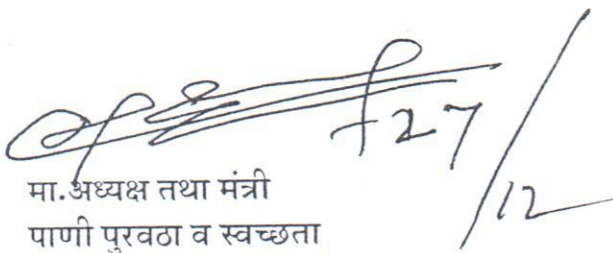 27/12
मा.अध्यक्ष तथा मंत्री
पाणी पुरवठा व स्वच्छता